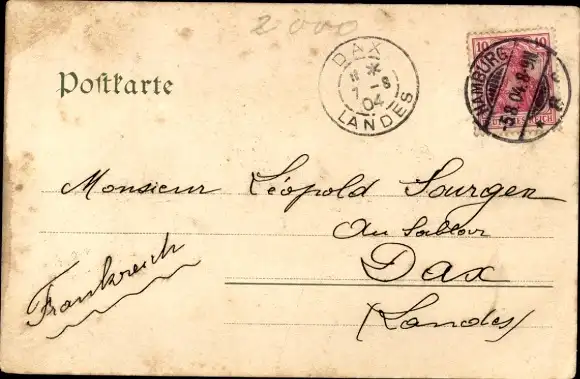 2000
DAX
11 *
7 - 8
04
LANDES
10 10
HAMBURG
5.8.04.8-9N.
* 8 *
DEUTSCHES REICH
Postkarte
Monsieur Léopold Sourgen
Au Sablar
Dax
(Landes)
Frankreich